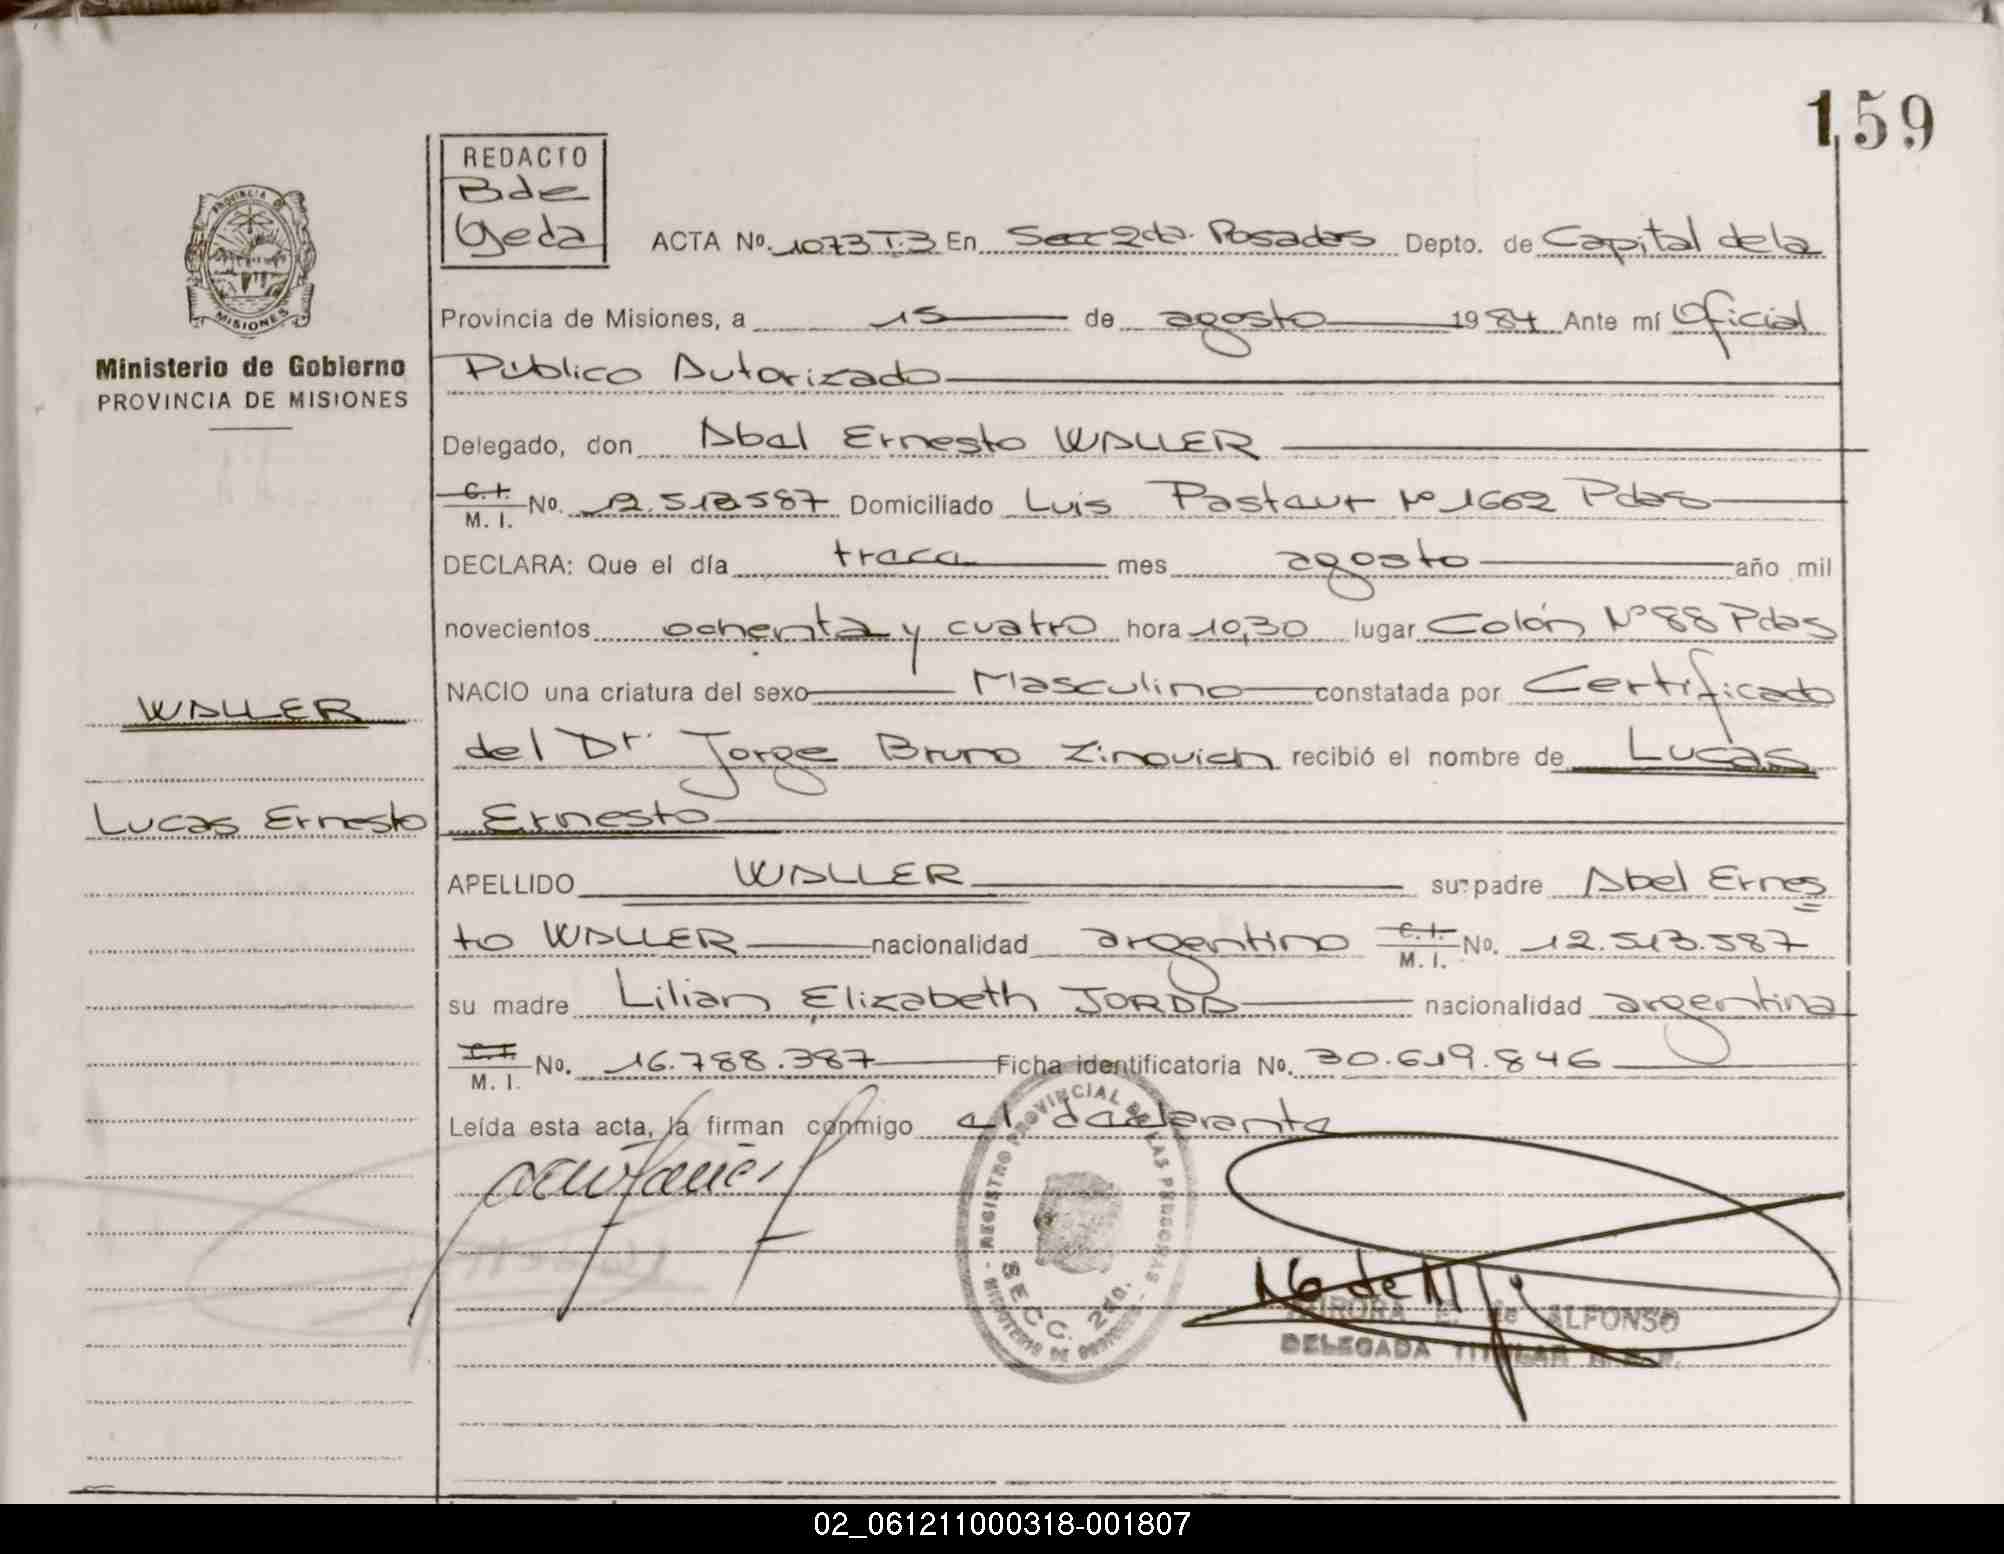 159
REDACTO
Bde
Geda
PROVINCIA DE
MISIONES
Ministerio de Gobierno
PROVINCIA DE MISIONES
ACTA Nº. 1073 T.3 En Secc 2da. Posadas Depto. de Capital de la
Provincia de Misiones, a 15 de agosto 1984 Ante mí Oficial
Público Autorizado
Delegado, don Abel Ernesto WALLER
C.I. M. I. No. 12.513.587 Domiciliado Luis Pasteur Nº 1662 Pdas
DECLARA: Que el día trece mes agosto año mil
novecientos ochenta y cuatro hora 10,30 lugar Colón Nº 88 Pdas
NACIO una criatura del sexo Masculino constatada por Certificado
WALLER
del Dr. Jorge Bruno Zinovich recibió el nombre de Lucas
Lucas Ernesto
Ernesto
APELLIDO WALLER su padre Abel Ernes
to WALLER nacionalidad argentino C.I. M. I. No. 12.513.587
su madre Lilian Elizabeth JORDA nacionalidad argentina
C.I. M. I. No. 16.788.387 Ficha identificatoria No. 30.619.846
Leída esta acta, la firman conmigo el declarante
REGISTRO PROVINCIAL DE LAS PERSONAS
SECC. 2da.
AURORA E. de ALFONSO
DELEGADA TITULAR
02_061211000318-001807